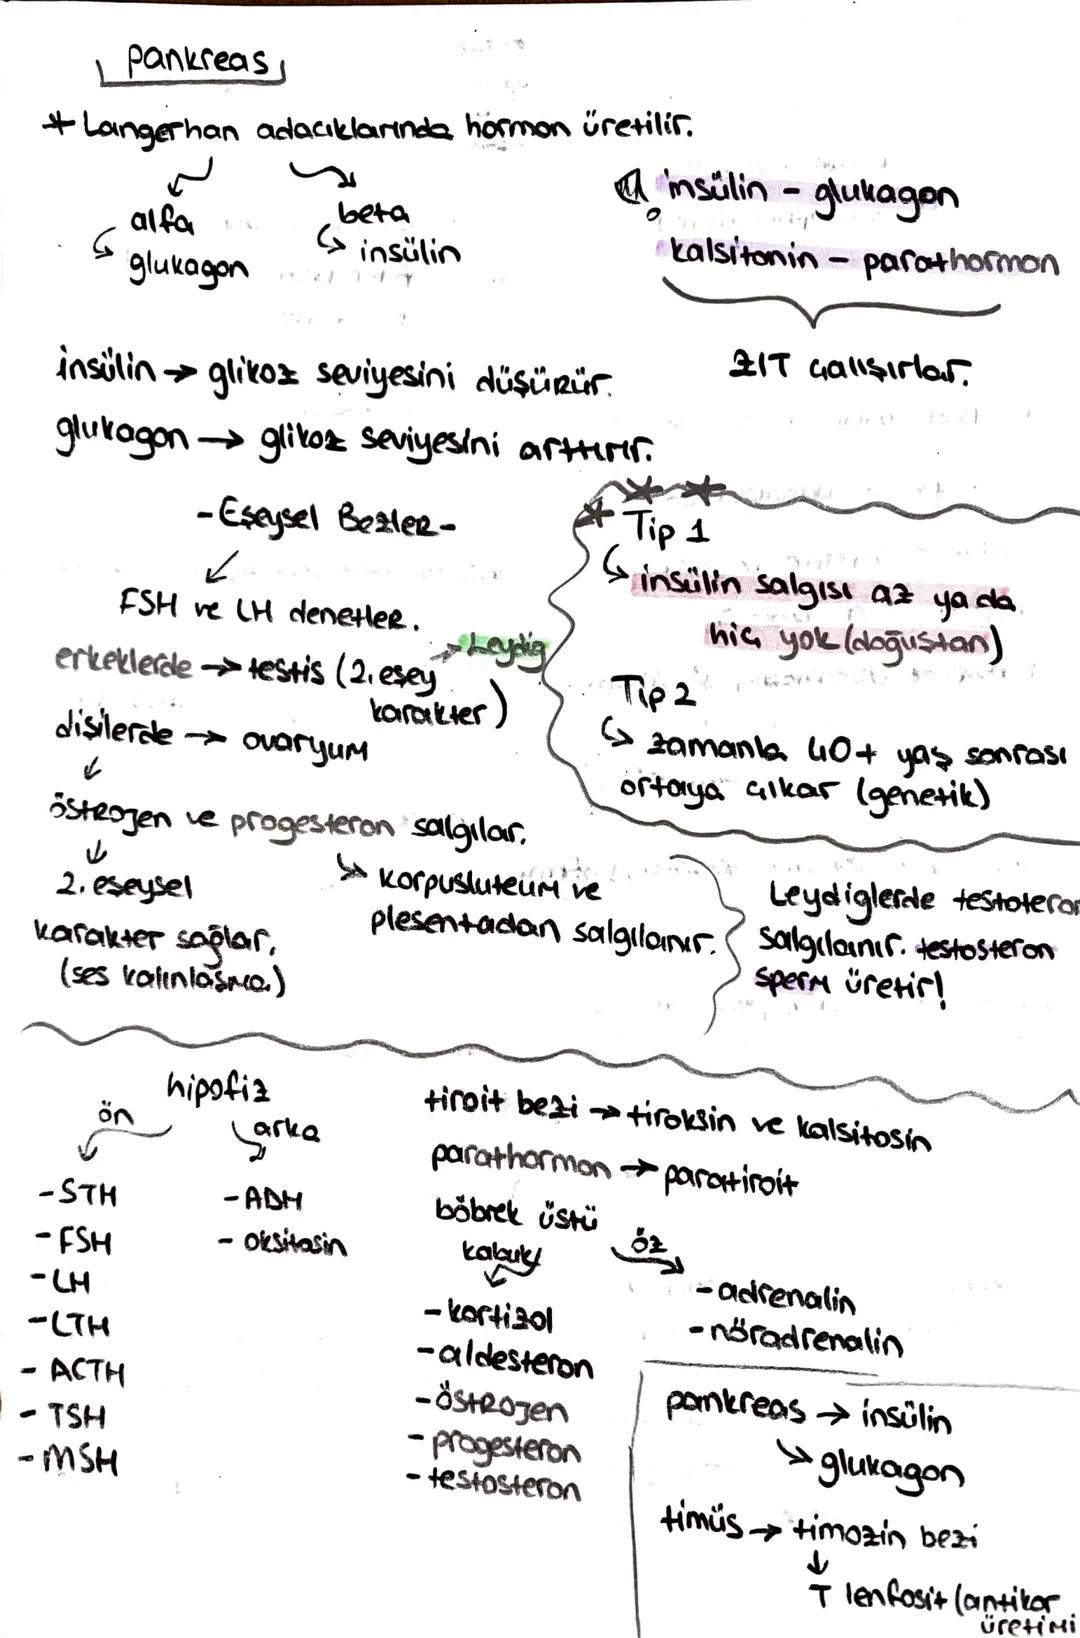 pankreas
* Langerhan adacıklarında hormon üretilir.
alfa
glukagon
beta
insülin
insülin - glukagon
kalsitonin - parathormon
ZIT çalışırlar.
insülin → glikoz seviyesini düşürür.
glukagon → glikoz seviyesini arttırır.
-Eşeysel Bezler-
FSH ve LH denetler.
erkeklerde → testis (2. eşey
karakter)
→ Leydig
dişilerde → ovaryum
östrojen ve progesteron salgılar.
2. eşeysel
karakter sağlar.
(ses kalınlaşma)
korpusluteum ve
plesentadan salgılanır.
Tip 1
insülin salgısı az ya da
hiç yok (doğuştan)
Tip 2
zamanla 40+ yaş sonrası
ortaya çıkar (genetik)
Leydiglerde testoteron
salgılanır. testosteron
sperm üretir!
hipofiz
ön
-STH
-FSH
-LH
-LTH
- ACTH
- TSH
-MSH
arka
-ADH
- oksitosin
tiroit bezi → tiroksin ve kalsitosin
parathormon → paratiroit
böbrek üstü
kabuk
-kortizol
-aldesteron
-östrojen
-progesteron
-testosteron
öz
-adrenalin
-nöradrenalin
pankreas → insülin
glukagon
timüs → timozin bezi
T lenfosit (antikor
üretimi